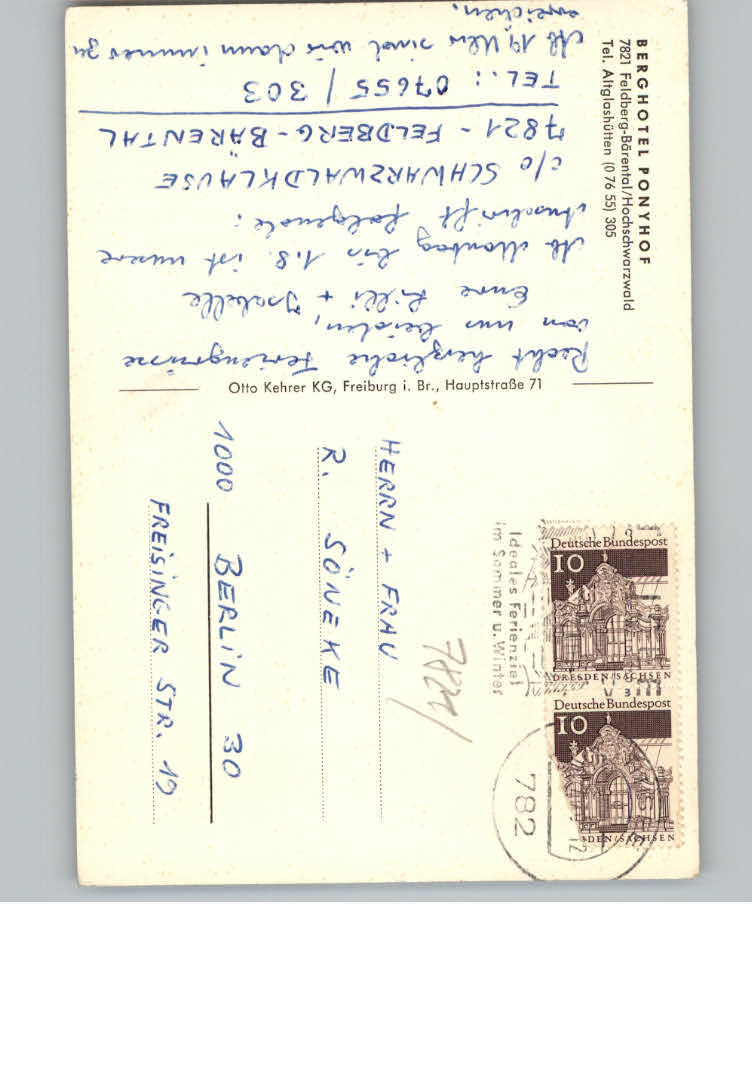 BERGHOTEL PONYHOF
7821 Feldberg-Bärental/Hochschwarzwald
Tel. Altglashütten (0 76 55) 305
Recht herzliche Feriengrüsse
von uns beiden,
Eure Lilli + Isabelle
Ab Montag bis 1.8. ist unsere
Anschrift folgende:
c/o SCHWARZWALDKLAUSE
7821 - FELDBERG - BÄRENTAL
TEL.: 07655 / 303
Ab 19 Uhr sind wir dann immer zu
erreichen.
Otto Kehrer KG, Freiburg i. Br., Hauptstraße 71
Deutsche Bundespost
10
DRESDEN/SACHSEN
Deutsche Bundespost
10
SDEN/SACHSEN
Ideales Ferienziel
im Sommer u. Winter
782
12
HERRN + FRAU
R. SÖNEKE
1000 BERLIN 30
FREISINGER STR. 19